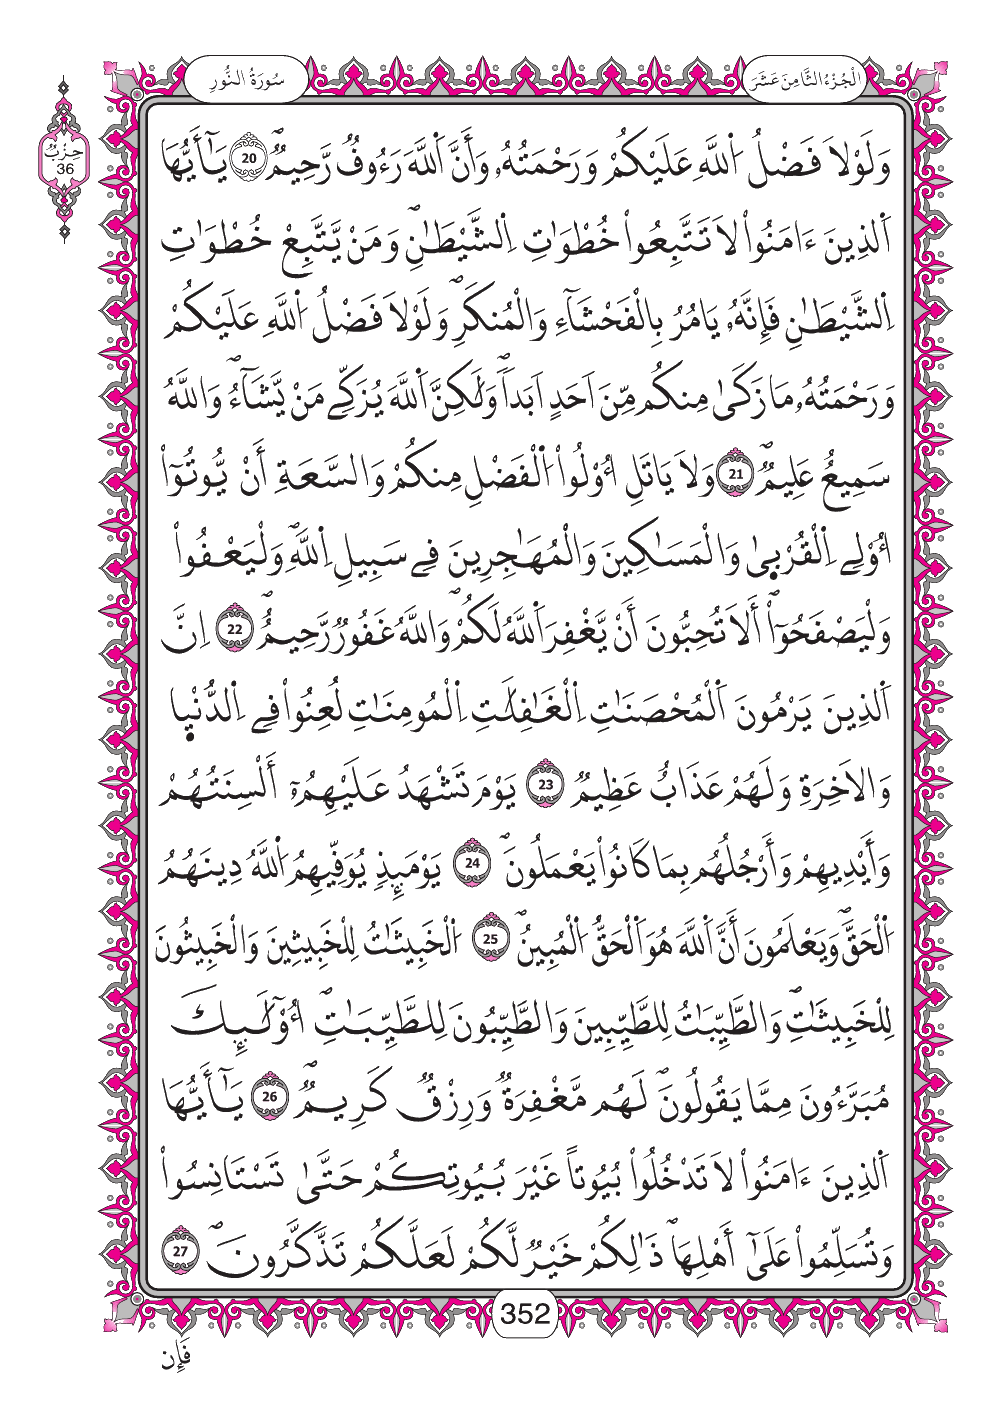 اَ۬لْجُزْءُ الثَّامِنَ عَشَرَ
سُورَةُ النُّورِ
حِزْبٌ
36
وَلَوْلَا فَضْلُ اُ۬للَّهِ عَلَيْكُمْ وَرَحْمَتُهُۥ وَأَنَّ اَ۬للَّهَ رَءُوفٌ رَّحِيمٌۖ 20 يَٰٓأَيُّهَا
اَ۬لذِينَ ءَامَنُواْ لَا تَتَّبِعُواْ خُطْوَٰتِ اِ۬لشَّيْطَٰنِۖ وَمَنْ يَّتَّبِعْ خُطْوَٰتِ
اِ۬لشَّيْطَٰنِ فَإِنَّهُۥ يَامُرُ بِالْفَحْشَآءِ وَالْمُنكَرِۖ وَلَوْلَا فَضْلُ اُ۬للَّهِ عَلَيْكُمْ
وَرَحْمَتُهُۥ مَا زَكَىٰ مِنكُم مِّنَ اَحَدٍ اَبَداٗۖ وَلَٰكِنَّ اَ۬للَّهَ يُزَكِّے مَنْ يَّشَآءُۖ وَاللَّهُ
سَمِيعٌ عَلِيمٌۖ 21 وَلَا يَاتَلِ أُوْلُواْ اُ۬لْفَضْلِ مِنكُمْ وَالسَّعَةِ أَنْ يُّوتُوٓاْ
أُوْلِے اِ۬لْقُرْبٜىٰ وَالْمَسَٰكِينَ وَالْمُهَٰجِرِينَ فِے سَبِيلِ اِ۬للَّهِۖ وَلْيَعْفُواْ
وَلْيَصْفَحُوٓاْۖ أَلَا تُحِبُّونَ أَنْ يَّغْفِرَ اَ۬للَّهُ لَكُمْۖ وَاللَّهُ غَفُورٌ رَّحِيمٌۖ 22 اِنَّ
اَ۬لذِينَ يَرْمُونَ اَ۬لْمُحْصَنَٰتِ اِ۬لْغَٰفِلَٰتِ اِ۬لْمُومِنَٰتِ لُعِنُواْ فِے اِ۬لدُّنْيٜا
وَالَاخِرَةِ وَلَهُمْ عَذَابٌ عَظِيمٌ 23 يَوْمَ تَشْهَدُ عَلَيْهِمُۥٓ أَلْسِنَتُهُمْ
وَأَيْدِيهِمْ وَأَرْجُلُهُم بِمَا كَانُواْ يَعْمَلُونَۖ 24 يَوْمَئِذٍ يُوَفِّيهِمُ اُ۬للَّهُ دِينَهُمُ
اُ۬لْحَقَّۖ وَيَعْلَمُونَ أَنَّ اَ۬للَّهَ هُوَ اَ۬لْحَقُّ اُ۬لْمُبِينُۖ 25 اُ۬لْخَبِيثَٰتُ لِلْخَبِيثِينَ وَالْخَبِيثُونَ
لِلْخَبِيثَٰتِۖ وَالطَّيِّبَٰتُ لِلطَّيِّبِينَ وَالطَّيِّبُونَ لِلطَّيِّبَٰتِۖ أُوْلَٰٓئِكَ
مُبَرَّءُونَ مِمَّا يَقُولُونَۖ لَهُم مَّغْفِرَةٌ وَرِزْقٌ كَرِيمٌۖ 26 يَٰٓأَيُّهَا
اَ۬لذِينَ ءَامَنُواْ لَا تَدْخُلُواْ بُيُوتاً غَيْرَ بُيُوتِكُمْ حَتَّىٰ تَسْتَانِسُواْ
وَتُسَلِّمُواْ عَلَىٰٓ أَهْلِهَاۖ ذَٰلِكُمْ خَيْرٌ لَّكُمْ لَعَلَّكُمْ تَذَّكَّرُونَۖ 27
352
فَإِن